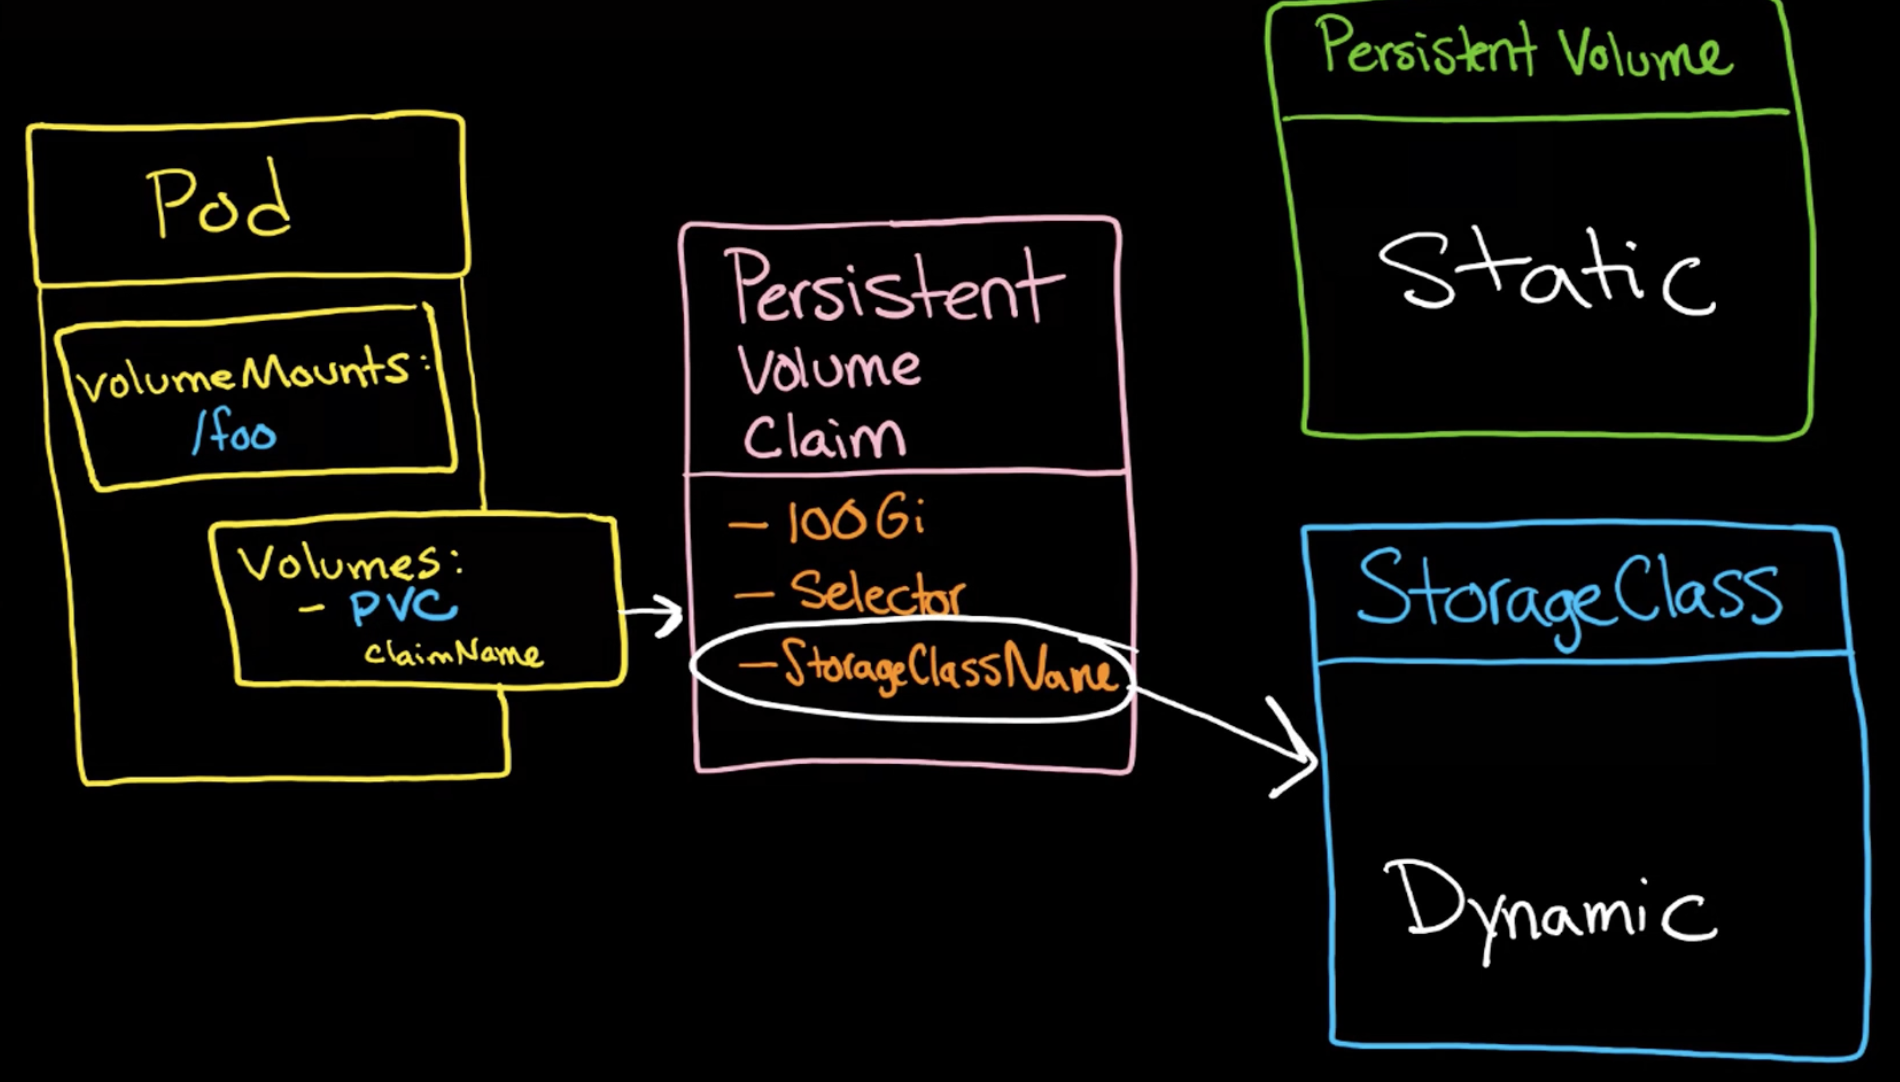 Pod
volumeMounts:
/foo
Volumes:
- PVC
claimName
Persistent
Volume
Claim
- 100Gi
- Selector
- StorageClassName
Persistent Volume
Static
StorageClass
Dynamic